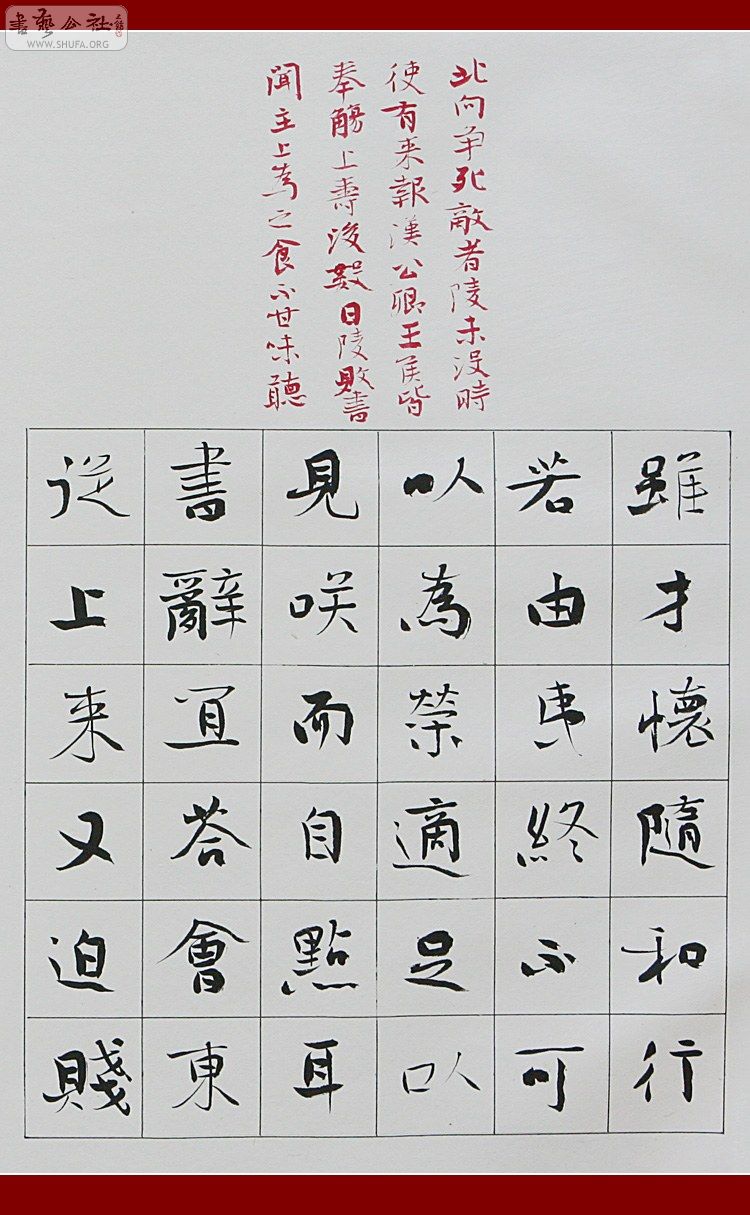 書藝公社
WWW.SHUFA.ORG
北向争死敵者陵未没時
使有来報漢公卿王侯皆
奉觴上壽後數日陵敗書
聞主上為之食不甘味聽
雖才懷隨和行
若由夷終不可
以為榮適足以
見咲而自點耳
書辭宜荅會東
從上来又迫賤